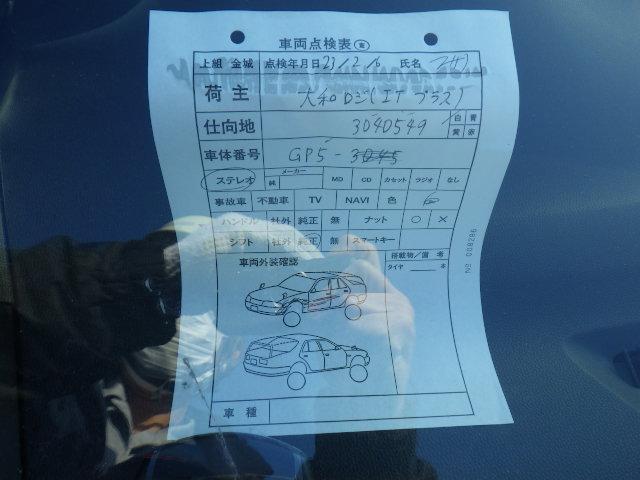 車両点検表
上組 金城 点検年月日 23/2/6 氏名
荷主 大和ロジ(ITプラス)
仕向地 3040549 白 青 黄 赤
車体番号 GP5-3045
ステレオ 純 メーカー MD CD カセット ラジオ なし
事故車 不動車 TV NAVI 色
ハンドル 社外 純正 無 ナット ○ ×
シフト 社外 純正 無 スマートキー
車両外装確認 搭載物/備考
タイヤ 本
車種
No 008286